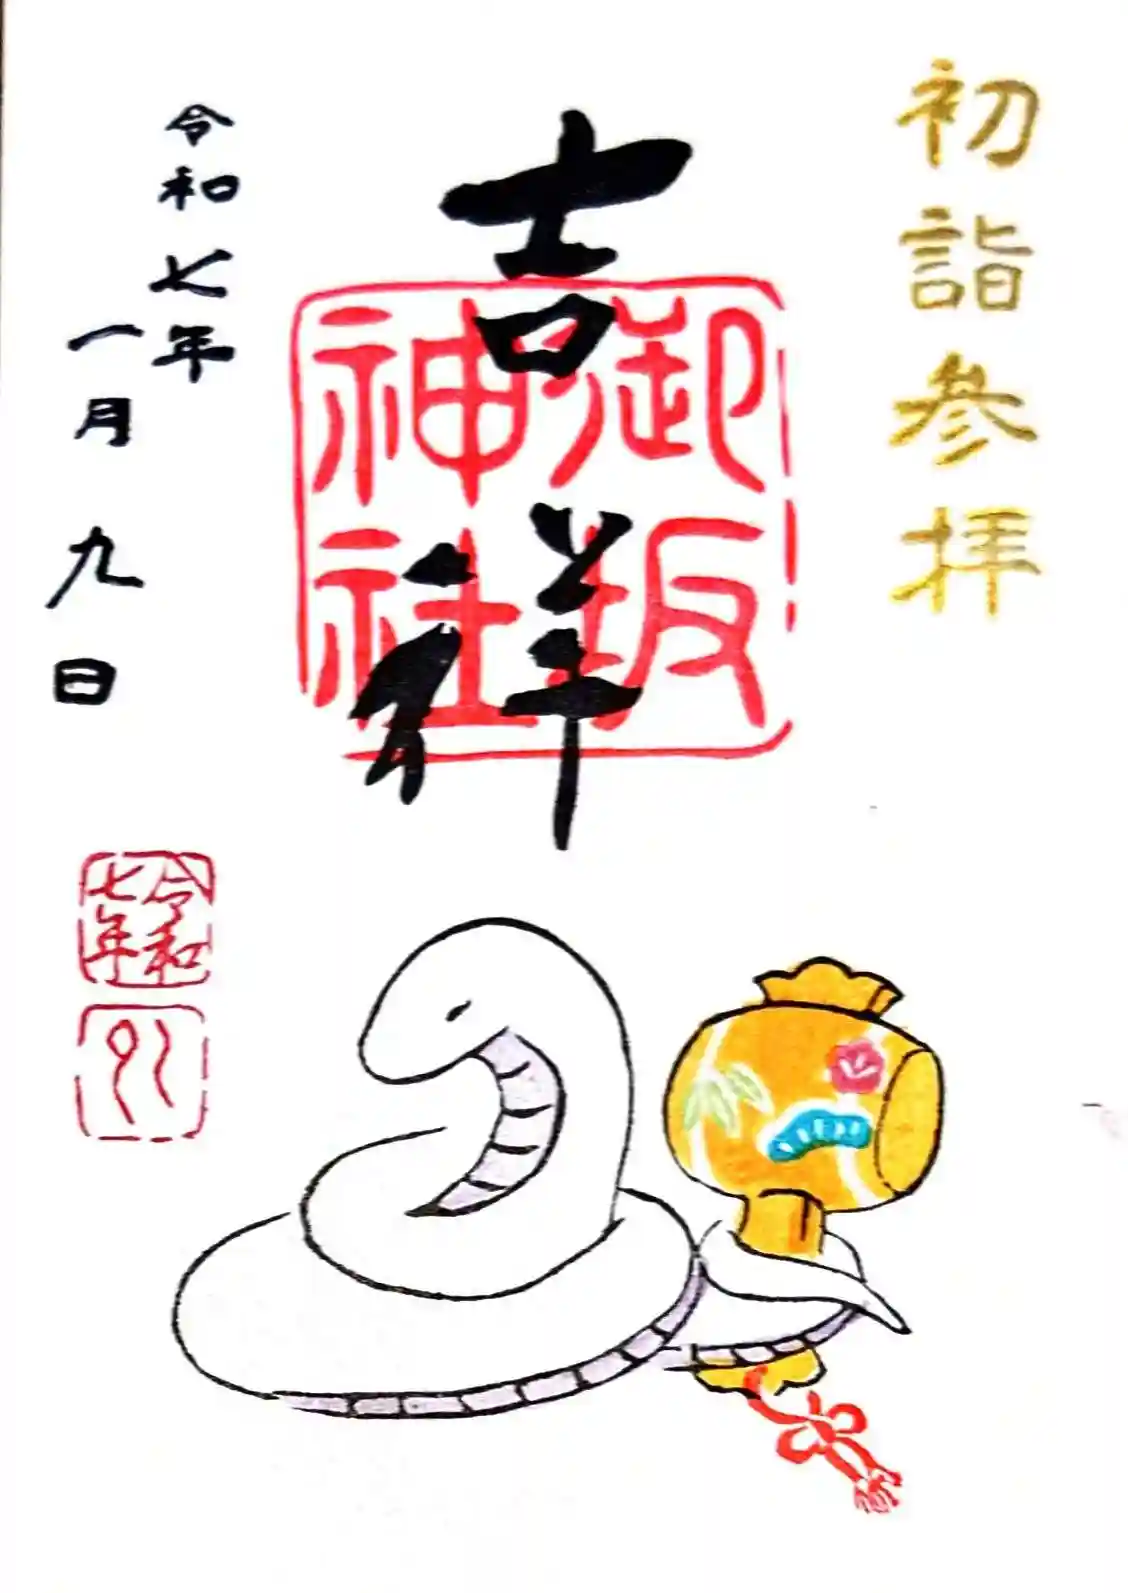 初詣参拝
吉祥
御阪
神社
令和七年
一月九日
令和
七年